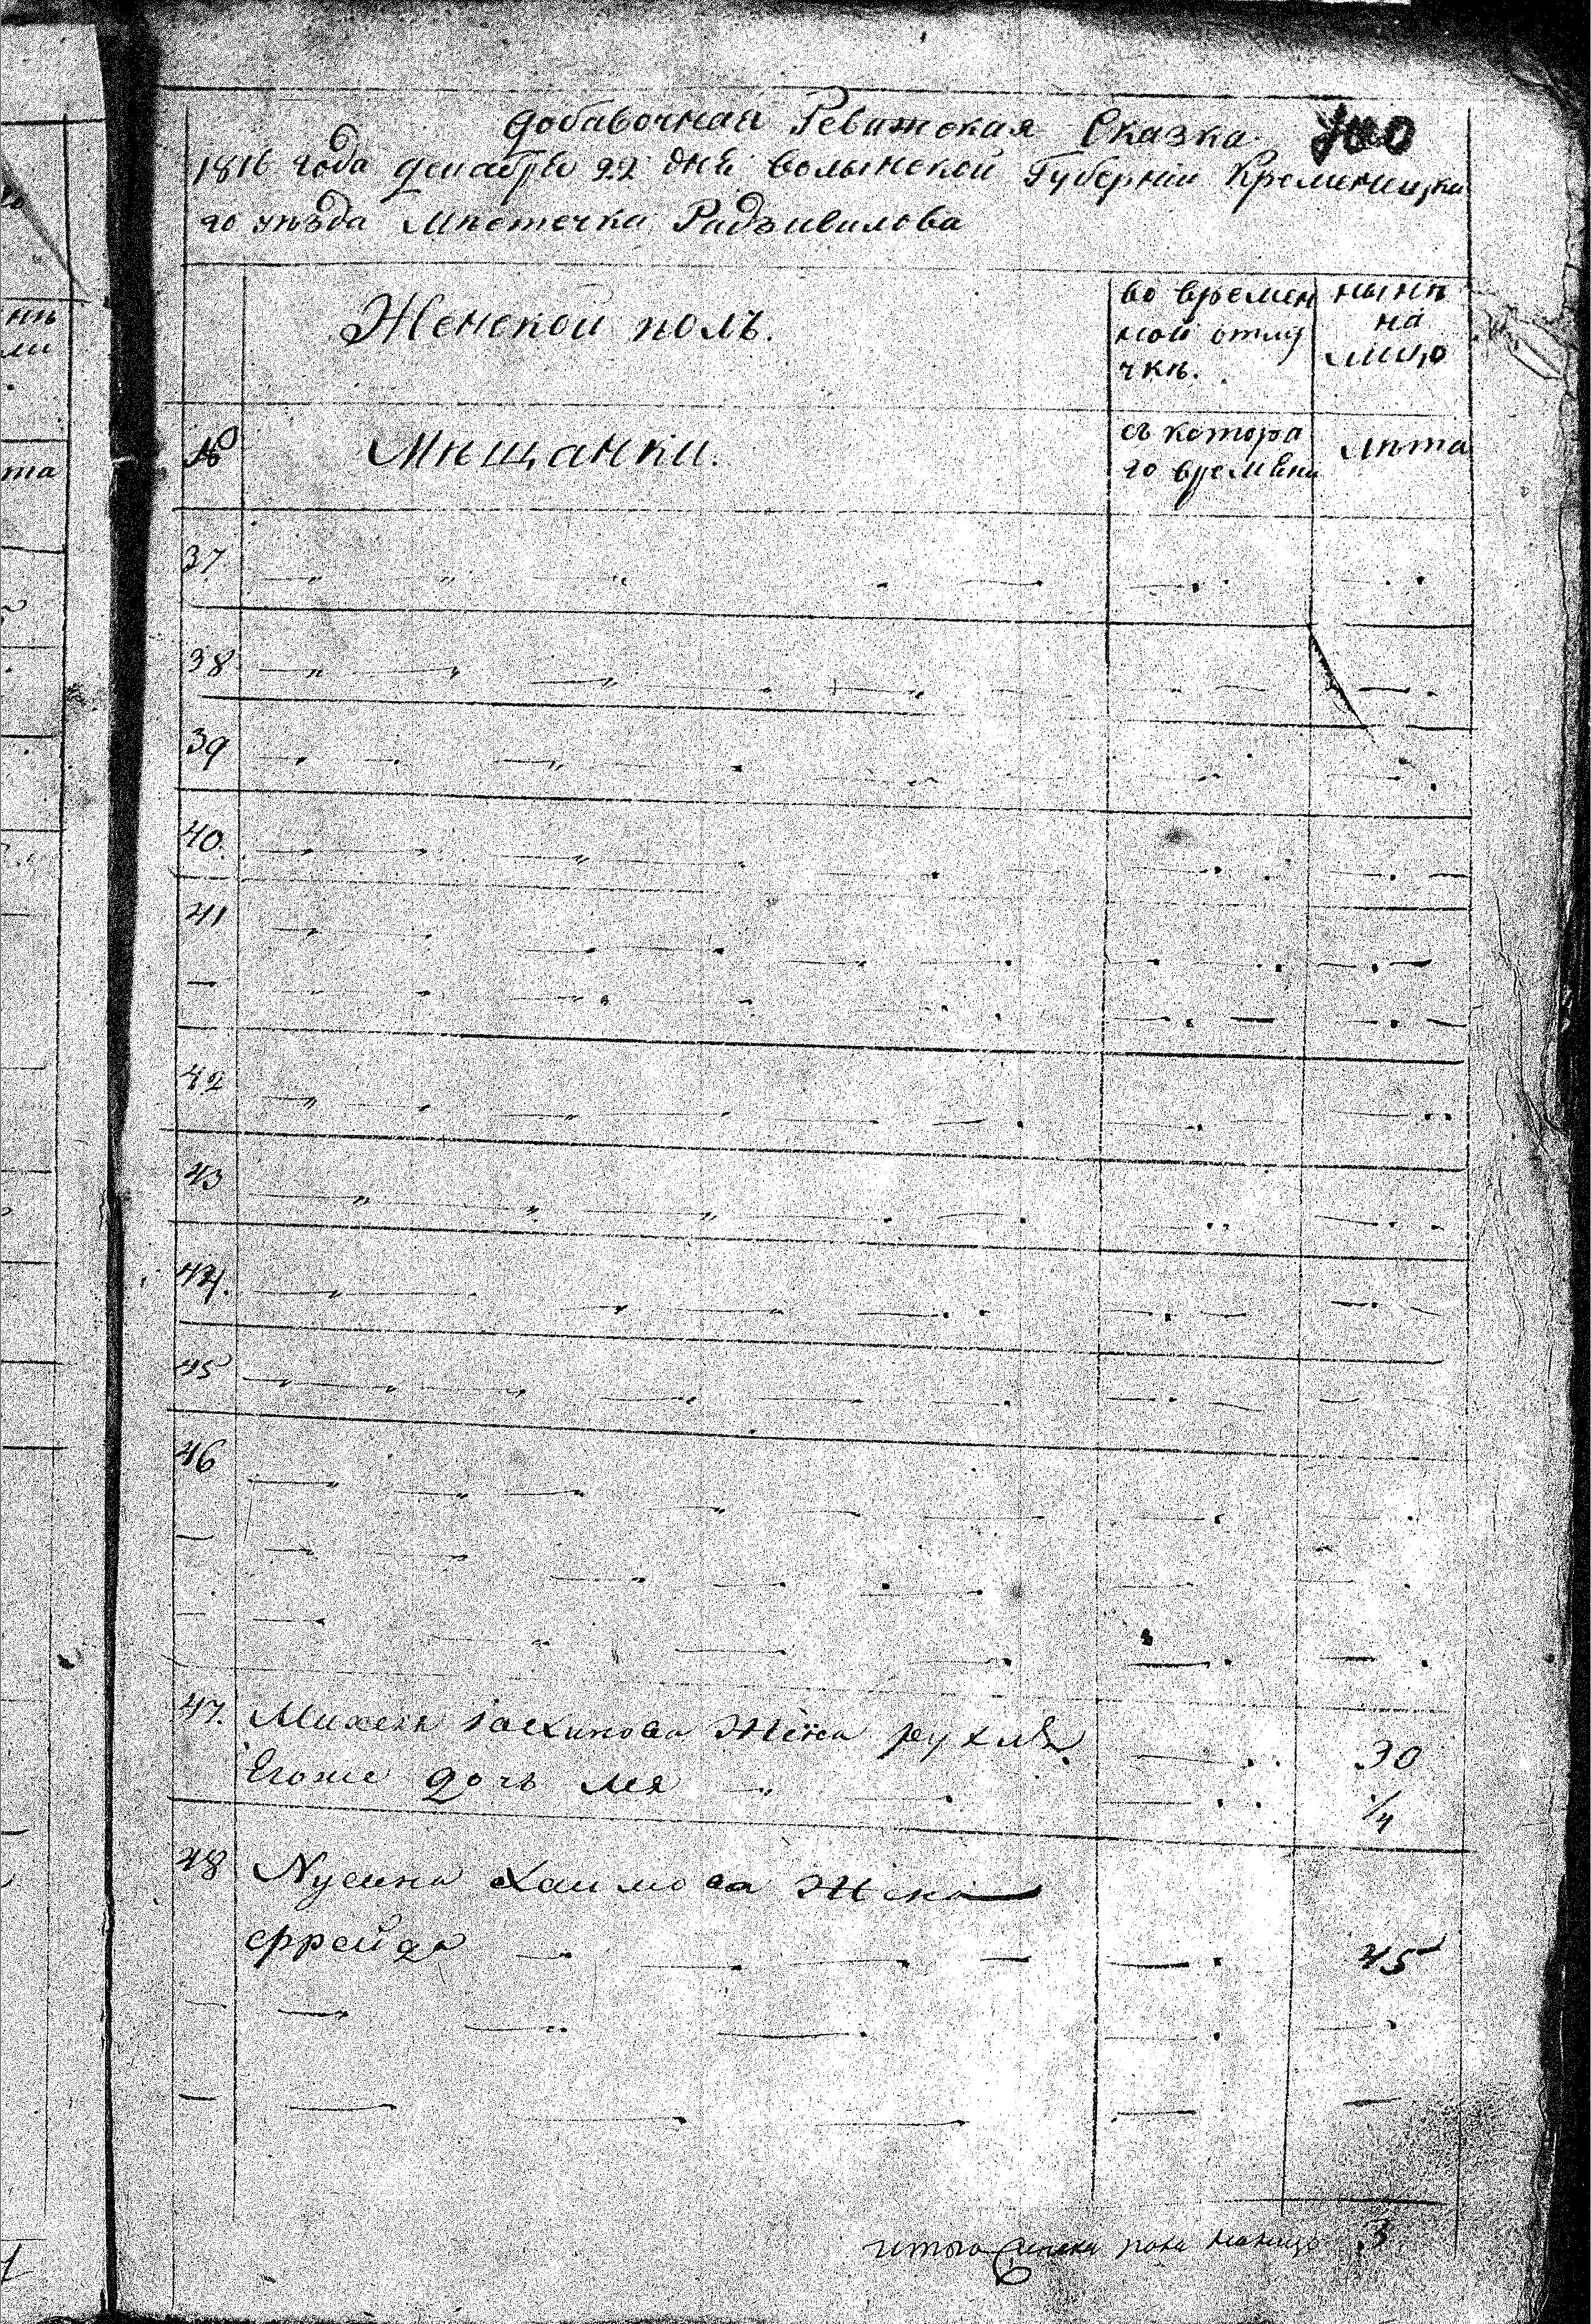 добавочная Ревижская Сказка
1816 года декабря 22 дня Волынской Губернии Кременецка
го уѣзда Мѣстечка Радзивилова
Женской полъ.
во времен
ной отлу
чкѣ.
нынѣ
на
лицо
№
Мѣщанки.
съ котора
го времѣни
лѣта
37
38
39
40.
41
42
43
44.
45
46
47. жена рухля 30
Егоже дочь лея 1/4
48 Нусина Хаимова жена
ффейда 45
итого пола налицо 3